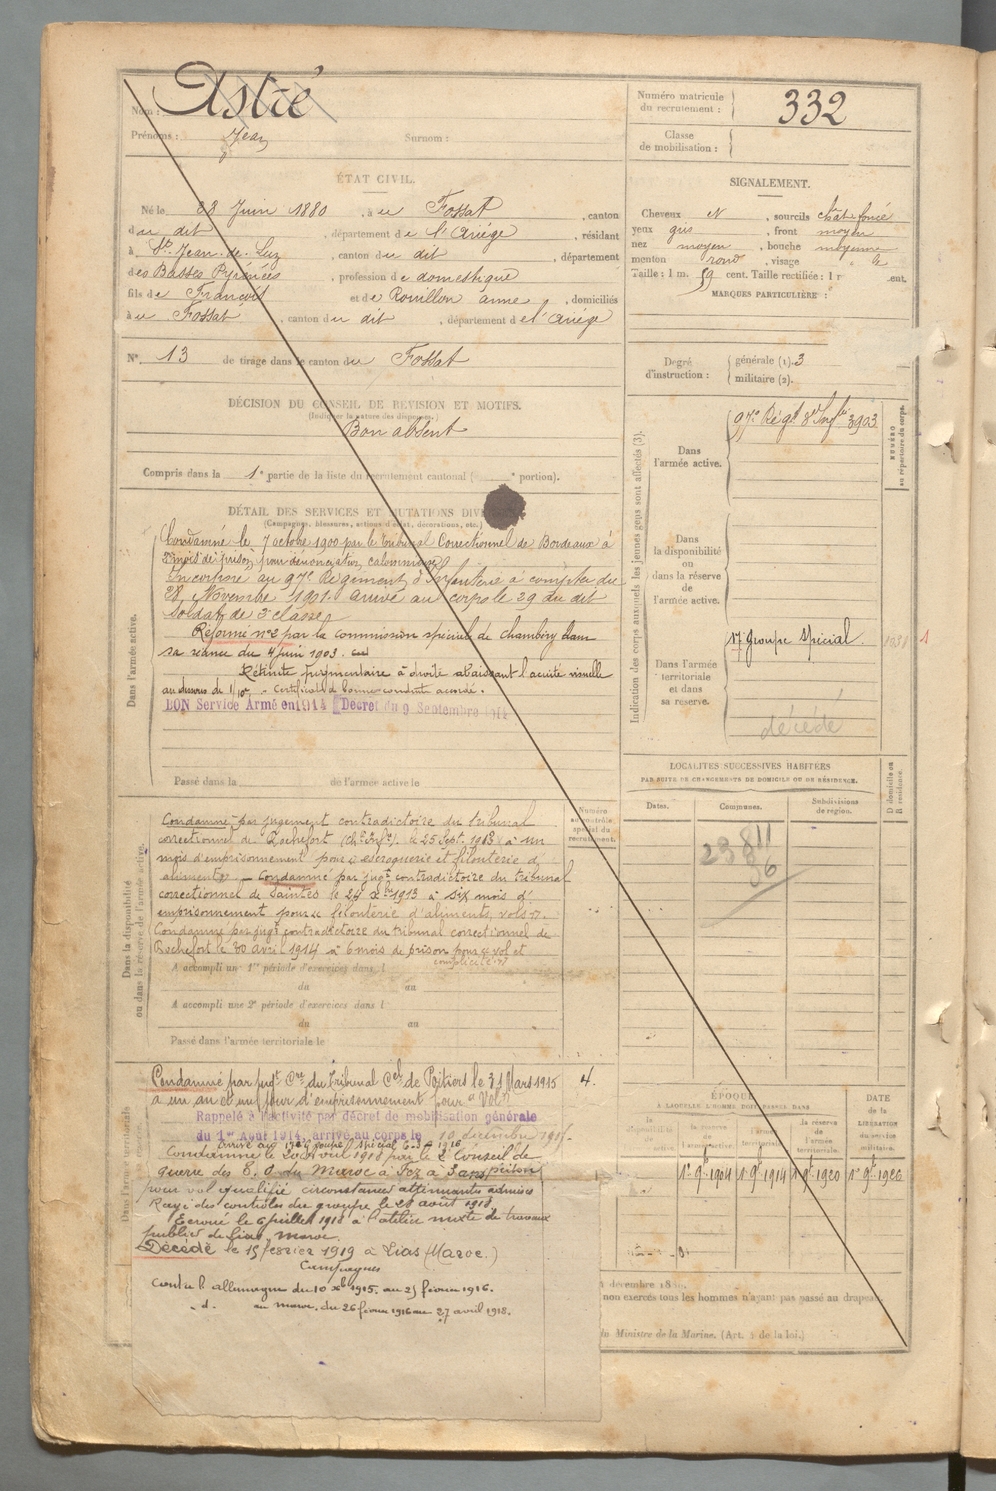 Nom : Astié
Prénoms : Jean Surnom :
ÉTAT CIVIL.
Né le 28 Juin 1880, à u Fossat, canton
du dit, département de l'Ariège, résidant
à St Jean-de-Luz, canton du dit, département
des Basses Pyrénées, profession de domestique
fils de François et de Rouillon anne, domiciliés
à u Fossat, canton du dit, département de l'Ariége
N° 13 de tirage dans le canton du Fossat
DÉCISION DU CONSEIL DE RÉVISION ET MOTIFS.
(Indiquer la nature des dispenses.)
Bon absent
Compris dans la 1e partie de la liste du recrutement cantonal ( e portion).
DÉTAIL DES SERVICES ET MUTATIONS DIV
(Campagnes, blessures, actions d'éclat, décorations, etc.)
Dans l'armée active.
Condamné le 7 octobre 1900 par le tribunal Correctionnel de Bordeaux à
mois de prison pour dénonciation calomnieuse
Incorporé au 97e Régiment d'Infanterie à compter du
28 Novembre 1901. arrivé au corps le 29 du dit
Soldat de 2e classe
Réformé n°2 par la commission spéciale de Chambéry dans
sa séance du 4 juin 1903.
Rétinite pigmentaire à droite abaissant l'acuité visuelle
au dessous de 1/10e - Certificat de bonne conduite accordé.
BON Service Armé en 1914 Décret du 9 Septembre 1914
Passé dans la de l'armée active le
Dans la disponibilité
ou dans la réserve de l'armée active.
Numéro
au contrôle
spécial du
recrutement.
Condamné par jugement contradictoire du tribunal
correctionnel de Rochefort (Ch. Infre). le 25 Sept. 1913 à un
mois d'emprisonnement pour « escroquerie et filouterie d'
aliments ». Condamné par jugt contradictoire du tribunal
correctionnel de Saintes le 24 Xbre 1913 à six mois d'
emprisonnement pour « filouterie d'aliments, vols ».
Condamné par jugt contradictoire du tribunal correctionnel de
Rochefort le 30 avril 1914 à 6 mois de prison pour « vol et
complicité »
A accompli un 1re période d'exercices dans l
du au
A accompli une 2e période d'exercices dans l
du au
Passé dans l'armée territoriale le
Dans l'armée territoriale
Condamné par jugt Cre du Tribunal Cel de Poitiers le 31 Mars 1915 4.
à un an et un jour d'emprisonnement pour « Vol »
Rappelé à l'activité par décret de mobilisation générale
du 1er Août 1914, arrivé au corps le 10 décembre 1915.
Arrivé au 17e Groupe spécial 6-3- 1916
Condamné le 20 Avril 1918 par le 2e Conseil de
guerre des T. O. du Maroc à Fez à 3 ans prison
pour vol qualifié circonstances atténuantes admises
Rayé des contrôles du groupe le 20 août 1918
Ecroué le 6 juillet 1918 à l'atelier mixte de travaux
publics de Lias, Maroc.
Décédé le 15 février 1919 à Lias (Maroc.)
Campagnes
Contre l'allemagne du 10 Xbre 1915. au 25 février 1916.
_ d. _ au maroc, du 26 février 1916 au 27 avril 1918.
Numéro matricule
du recrutement : 332
Classe
de mobilisation :
SIGNALEMENT.
Cheveux et, sourcils chât. foncé
yeux gris, front moyen
nez moyen, bouche moyenne
menton rond, visage
Taille : 1 m. 59 cent. Taille rectifiée : 1 cent.
MARQUES PARTICULIÈRE :
Degré
d'instruction :
générale (1). 3
militaire (2).
Indication des corps auxquels les jeunes gens sont affectés (3).
NUMÉRO
au répertoire du corps.
Dans
l'armée active.
97e Régt d'Infie 3903
Dans
la disponibilité
ou
dans la réserve
de
l'armée active.
Dans l'armée
territoriale
et dans
sa reserve.
17e Groupe Spécial 1
décédé
LOCALITÉS SUCCESSIVES HABITÉES
PAR SUITE DE CHANGEMENTS DE DOMICILE OU DE RÉSIDENCE.
Dates. Communes. Subdivisions
de region. D domicile ou
R résidence.
23 811
36
ÉPOQUE
À LAQUELLE L'HOMME DOIT PASSER DANS
DATE
de la
LIBÉRATION
du service
militaire.
la
disponibilité
active. la réserve
de
l'armée
active. l'armée
territoriale. la réserve
de
l'armée
territoriale.
1er 9bre 1904 1er 9bre 1914 1er 9bre 1920 1er 9bre 1926
décembre 18
non exercés tous les hommes n'ayant pas passé au drapeau
Ministre de la Marine. (Art. 4 de la loi.)